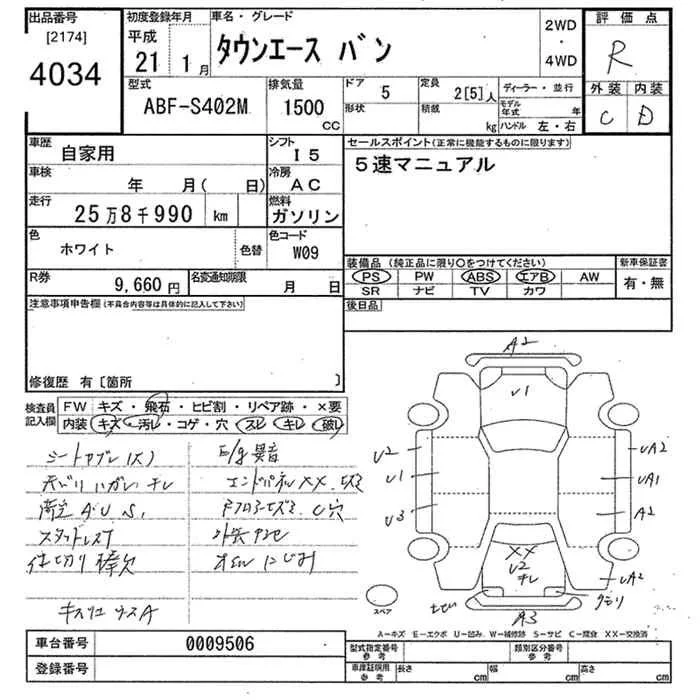 出品番号
[2174]
4034
初度登録年月
平成
21 1月
車名・グレード
タウンエース バン
2WD
・
4WD
評価点
R
外装 内装
C D
型式
ABF-S402M
排気量
1500
CC
ドア
5
形状
定員
2[5]人
積載
kg
ディーラー・並行
モデル年式 年
ハンドル 左・右
車歴
自家用
シフト
I5
車検
年 月( 日)
冷房
AC
走行
25万8千990 km
燃料
ガソリン
色
ホワイト
色替
色コード
W09
R券
9,660円
名変通知期限
月 日
セールスポイント(正常に機能するものに限ります)
5速マニュアル
装備品(純正品に限り〇をつけてください)
PS PW ABS エアB AW
SR ナビ TV カワ
新車保証書
有・無
後日品
注意事項申告欄(不具合内容等は具体的に記入して下さい)
修復歴 有[箇所 ]
検査員記入欄
FW キズ・飛石・ヒビ割・リペア跡・×要
内装 キズ・汚レ・コゲ・穴・スレ・キレ・破レ
E/g異音
エンドパネルXX
U穴
スタッドレス
仕切り棒欠
オイルにじみ
A2
U1
U2
U1
U3
UA2
UA1
A2
XX
U2
キレ
UA2
クモリ
A3
スペア
A-キズ E-エクボ U-凹み W-補修跡 S-サビ C-腐食 XX-交換済
車台番号
0009506
登録番号
型式指定番号
参考
類別区分番号
参考
車庫証明用
参考
長さ cm 幅 cm 高さ cm